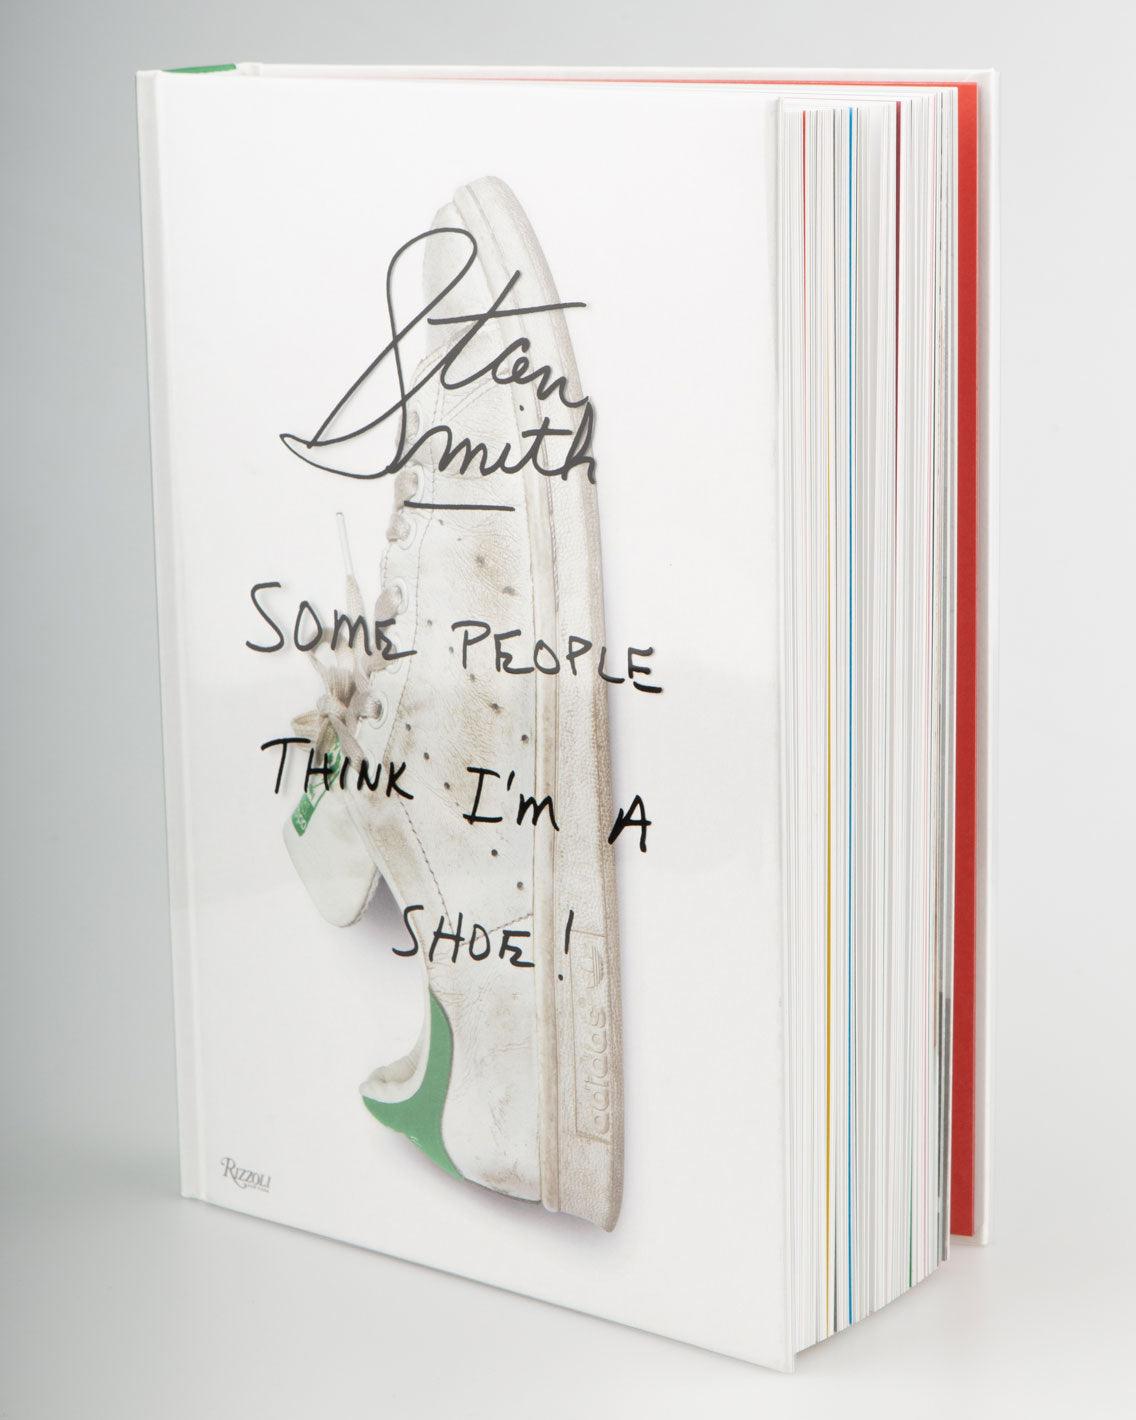 Stan
Smith
SOME PEOPLE
THINK I'M A
SHOE!
adidas
RIZZOLI